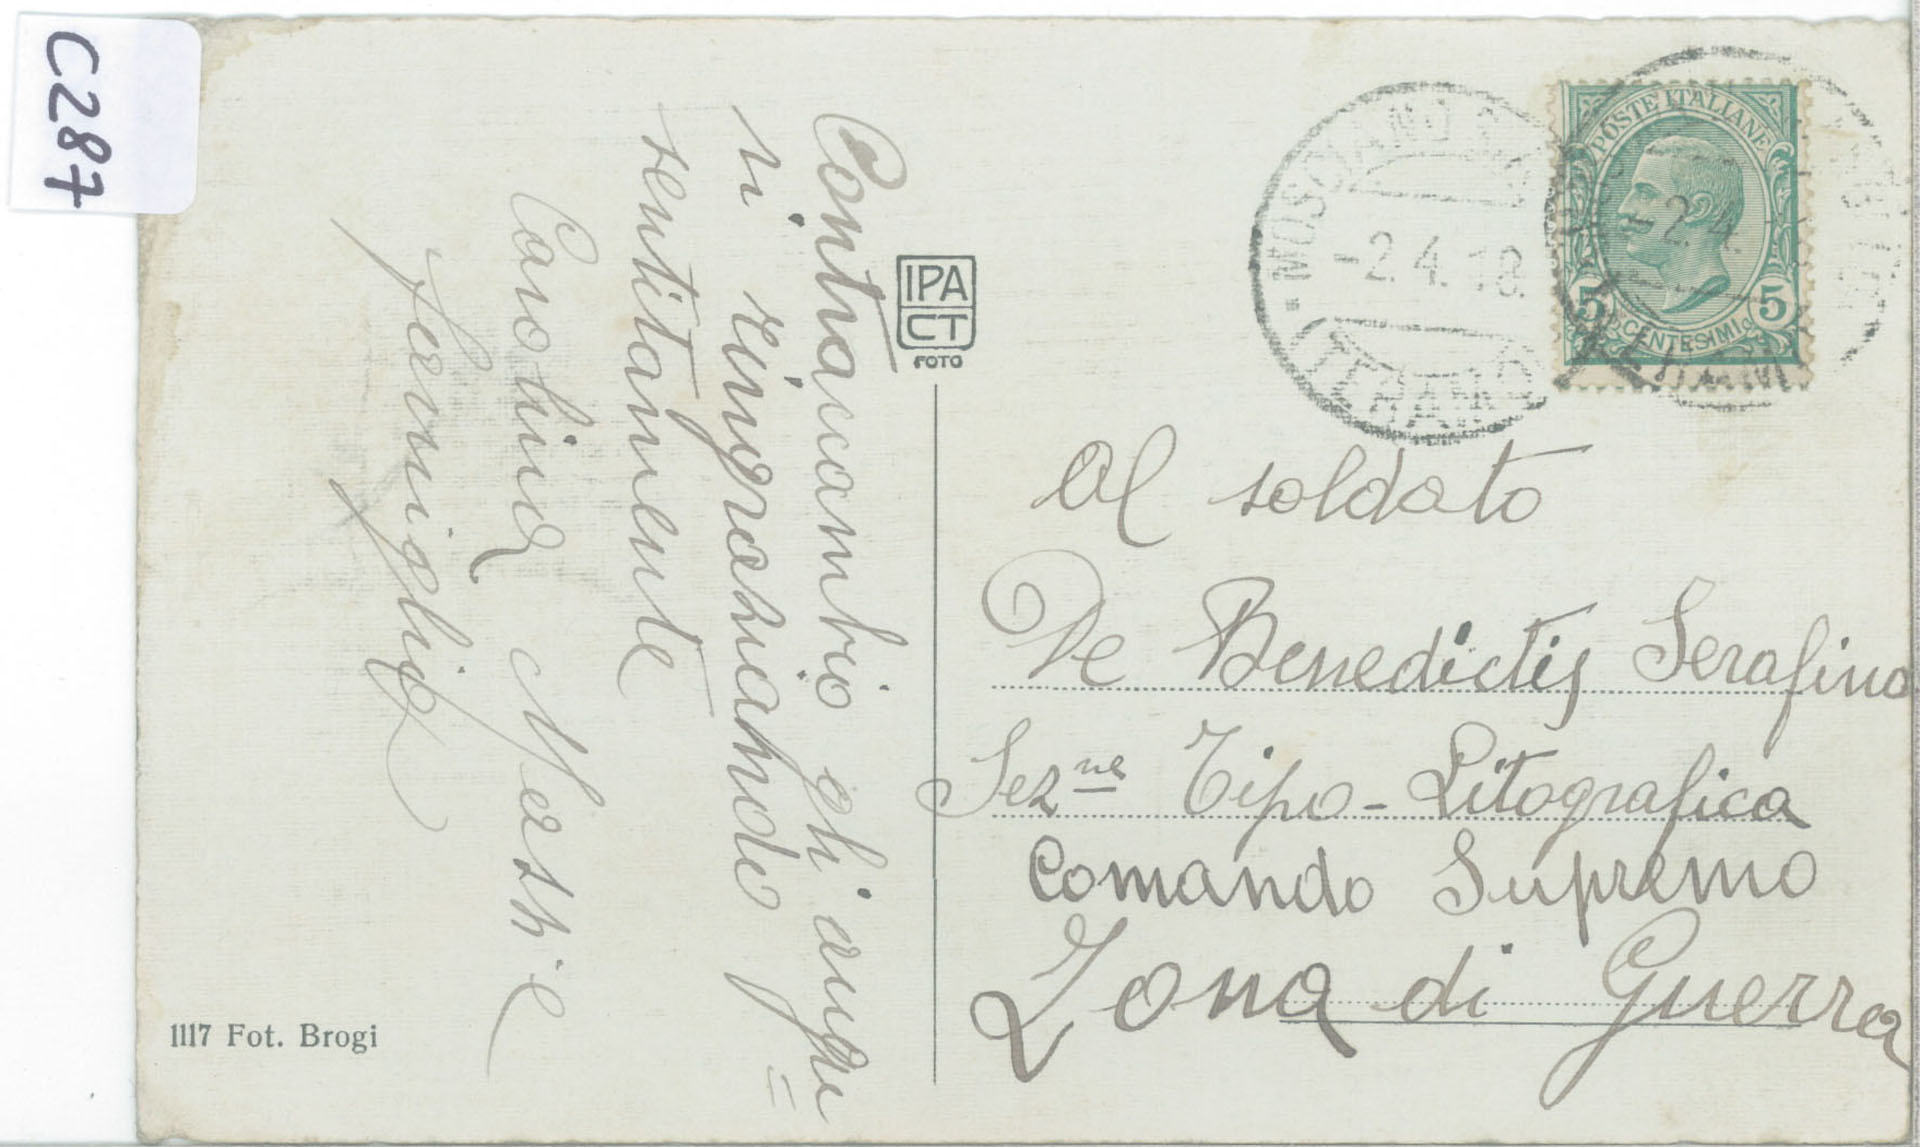 C287
Contraccambio gli augu
vi ringraziando =
sentitamente
Carolina Mestri e
famiglia
IPA
CT
FOTO
1117 Fot. Brogi
POSTE ITALIANE
5 CENTESIMI 5
MOSCIANO
-2.4.18
(TERAMO)
-2.4.
Al soldato
De Benedictis Serafino
Sez.ne Tipo-Litografica
Comando Supremo
Zona di Guerra